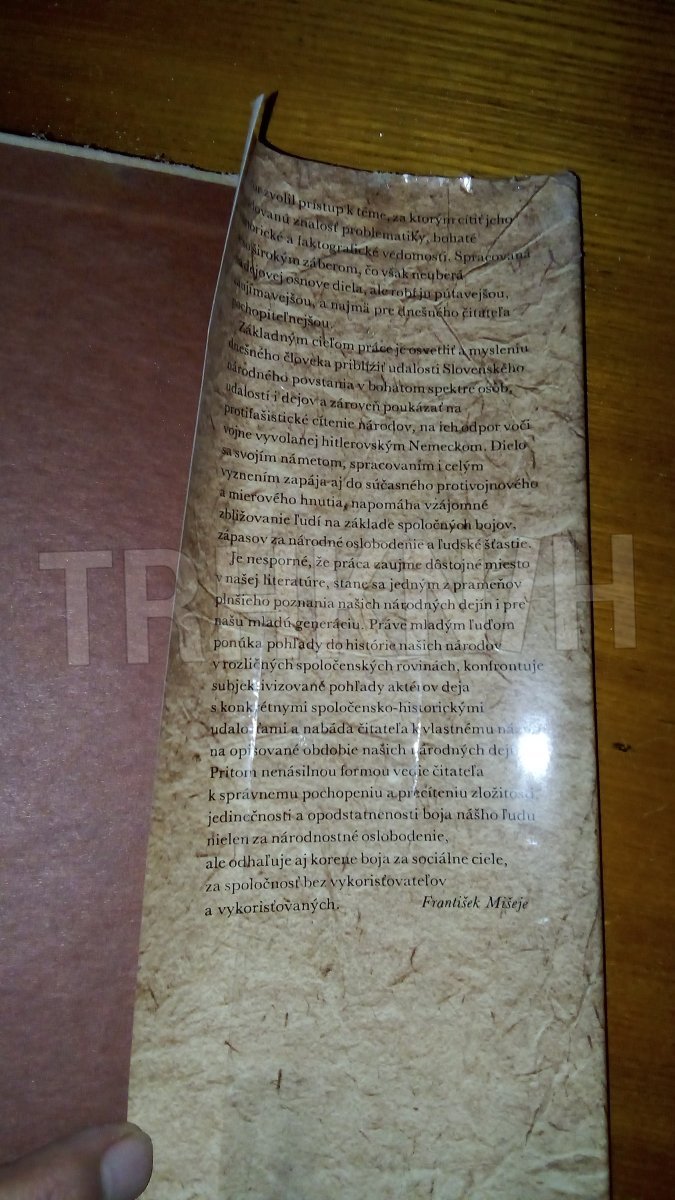 zvolil prístup k téme, za ktorým cítiť jeho
znalosť problematiky, bohaté
a faktografické vedomosti. Spracovaná
širokým záberom, čo však neuberá
osnove diela, ale robí ju pútavejšou,
a najmä pre dnešného čitateľa
pochopiteľnejšou.
Základným cieľom práce je osvetliť a mysleniu
dnešného človeka priblížiť udalosti Slovenského
národného povstania v bohatom spektre osôb,
udalostí i dejov a zároveň poukázať na
protifašistické cítenie národov, na ich odpor voči
vojne vyvolanej hitlerovským Nemeckom. Dielo
sa svojím námetom, spracovaním i celým
vyznením zapája aj do súčasného protivojnového
a mierového hnutia, napomáha vzájomné
zbližovanie ľudí na základe spoločných bojov,
zápasov za národné oslobodenie a ľudské šťastie.
Je nesporné, že práca zaujme dôstojné miesto
v našej literatúre, stane sa jedným z prameňov
plnšieho poznania našich národných dejín i pre
našu mladú generáciu. Práve mladým ľuďom
ponúka pohľady do histórie našich národov
v rozličných spoločenských rovinách, konfrontuje
subjektivizované pohľady aktérov deja
s konkrétnymi spoločensko-historickými
udalosťami a nabáda čitateľa k vlastnému
na opisované obdobie našich národných dejín
Pritom nenásilnou formou vedie čitateľa
k správnemu pochopeniu a precíteniu zložitosti,
jedinečnosti a opodstatnenosti boja nášho ľudu
nielen za národnostné oslobodenie,
ale odhaľuje aj korene boja za sociálne ciele,
za spoločnosť bez vykorisťovateľov
a vykorisťovaných. František Mišeje